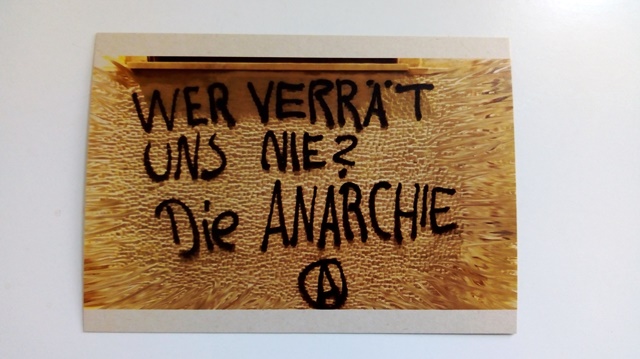 WER VERRÄT
UNS NIE?
Die ANARCHIE
Ⓐ